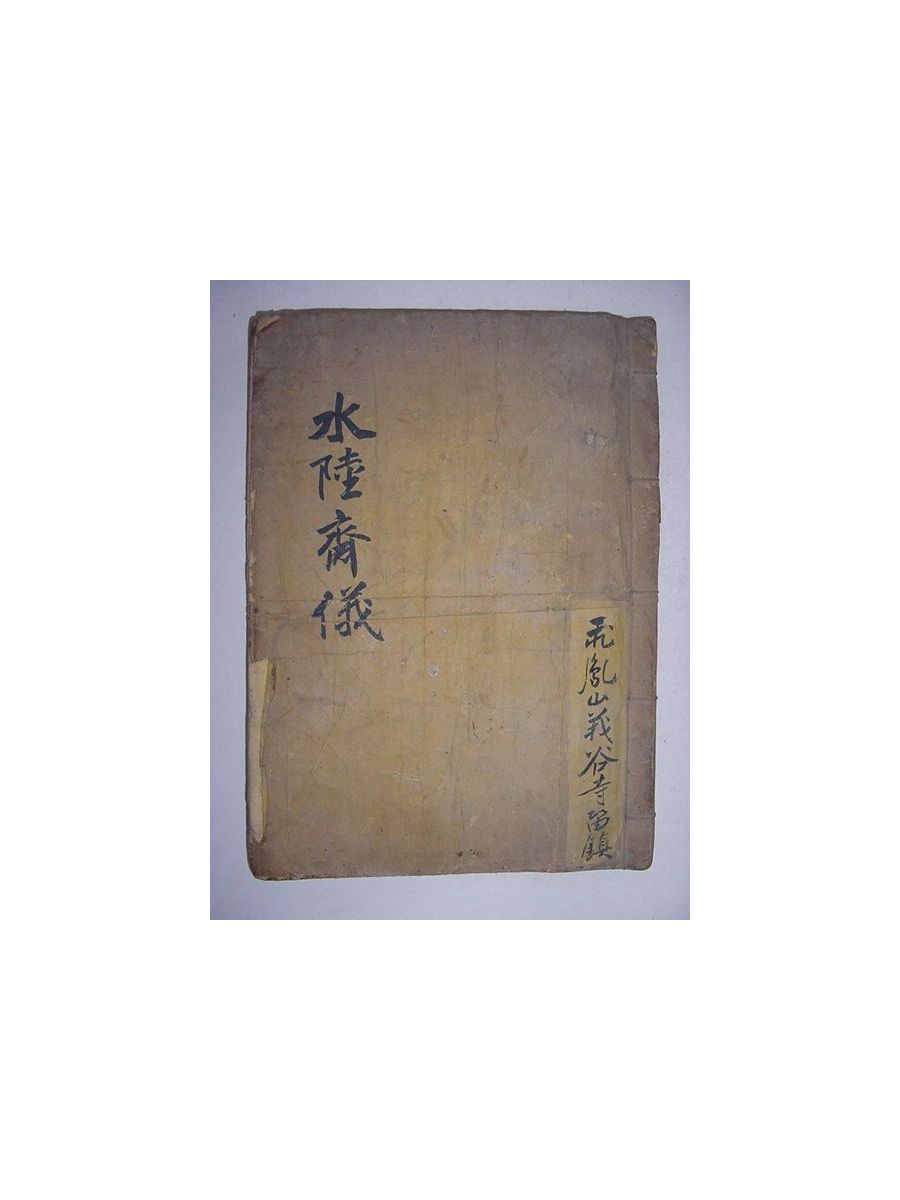 飛鳳山義谷寺留鎮
水陸齋儀